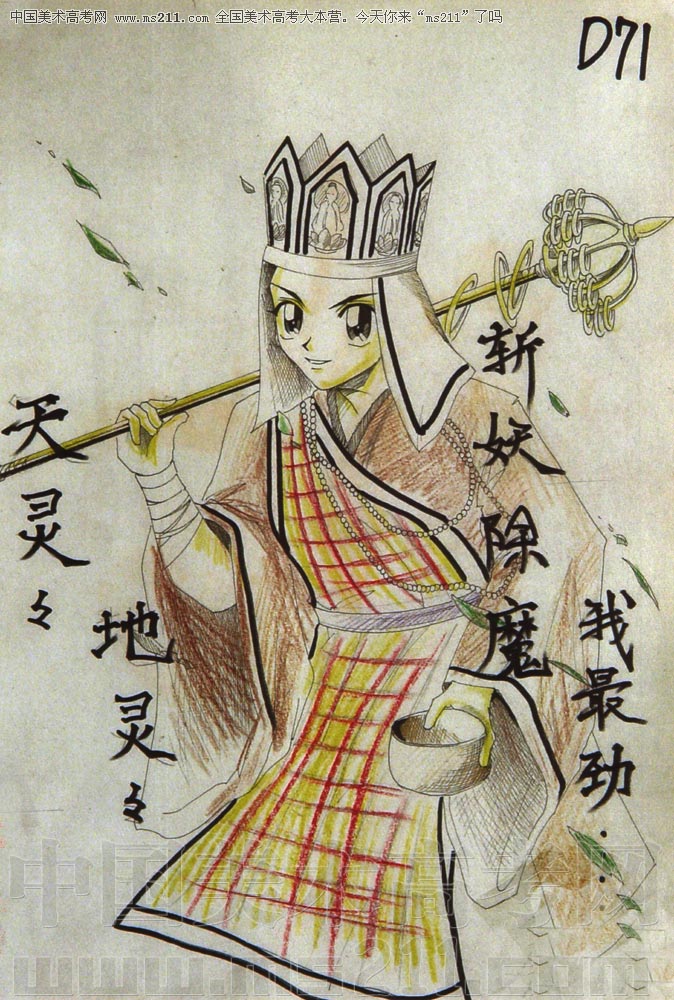 中国美术高考网 www.ms211.com 全国美术高考大本营。今天你来“ms211”了吗
D71
天灵々
地灵々
斩妖除魔
我最劲...
中国美术高考网
www.ms211.com